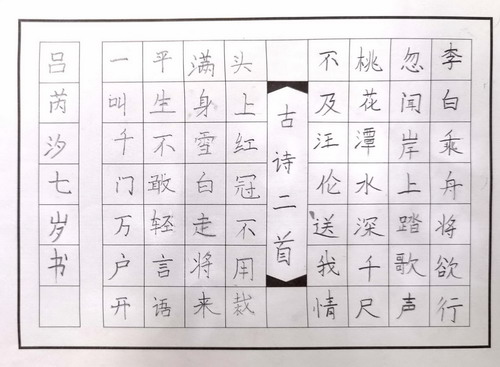 李白乘舟将欲行
忽闻岸上踏歌声
桃花潭水深千尺
不及汪伦送我情
古诗二首
头上红冠不用裁
满身雪白走将来
平生不敢轻言语
一叫千门万户开
吕芮汐七岁书